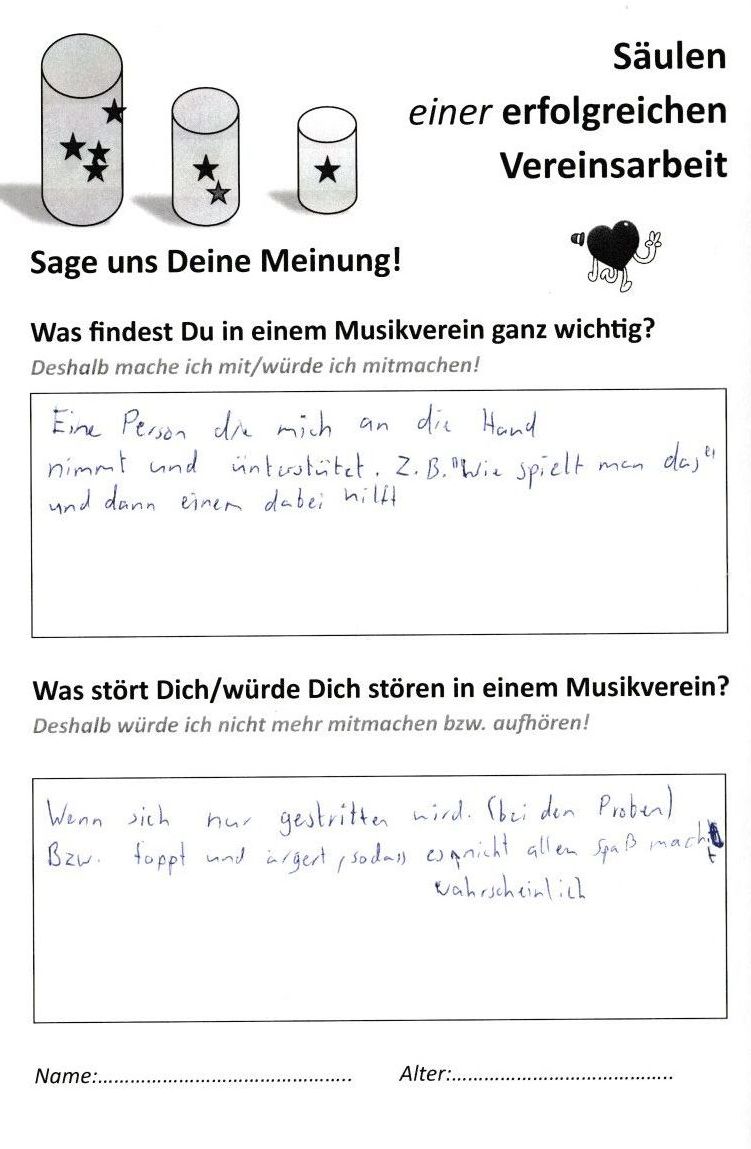 Säulen
einer erfolgreichen
Vereinsarbeit
Sage uns Deine Meinung!
Was findest Du in einem Musikverein ganz wichtig?
Deshalb mache ich mit/würde ich mitmachen!
Eine Person die mich an die Hand
nimmt und unterstützt. Z.B. "Wie spielt man das"
und dann einem dabei hilft
Was stört Dich/würde Dich stören in einem Musikverein?
Deshalb würde ich nicht mehr mitmachen bzw. aufhören!
Wenn sich nur gestritten wird. (bei den Proben)
Bzw. foppt und ärgert, sodass es nicht allen Spaß macht
wahrscheinlich
Name:................................................
Alter:..........................................